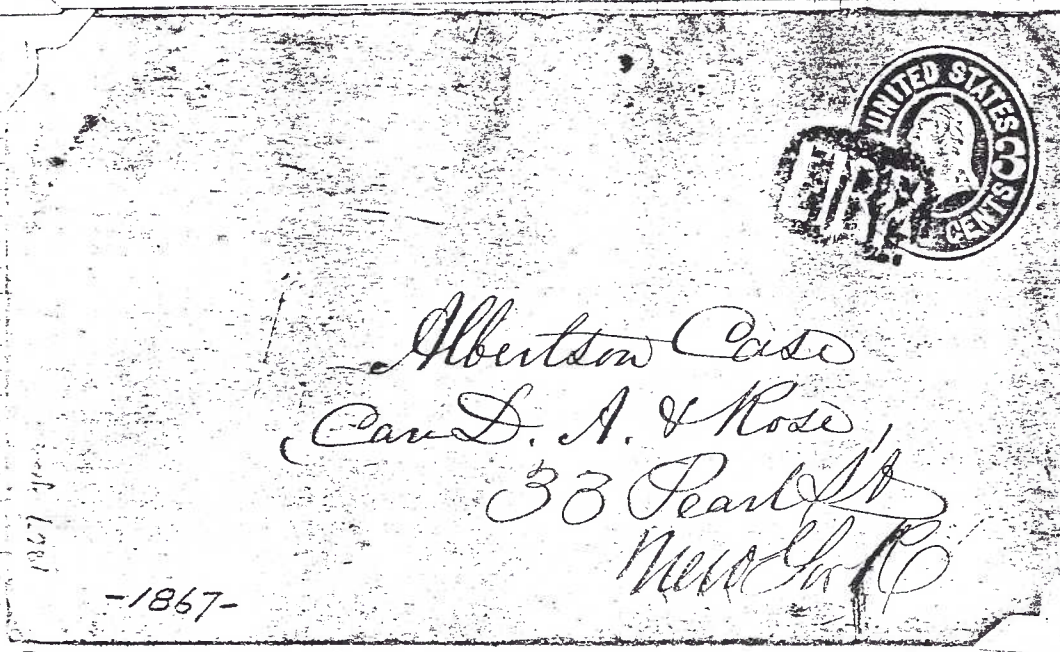 UNITED STATES
3
CENTS
Albertson Case
Care D. A. & Rose,
33 Pearl St
New York
-1867-
1867